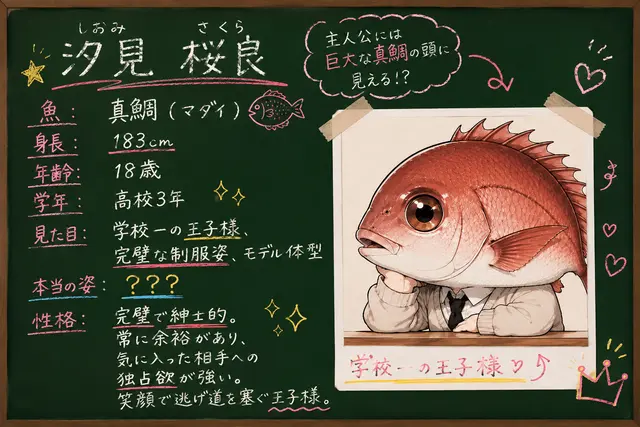 しおみ さくら
汐見 桜良
魚： 真鯛（マダイ）
身長： 183cm
年齢： 18歳
学年： 高校3年
見た目： 学校一の王子様、
完璧な制服姿、モデル体型
本当の姿： ？？？
性格： 完璧で紳士的。
常に余裕があり、
気に入った相手への
独占欲が強い。
笑顔で逃げ道を塞ぐ王子様。
主人公には
巨大な真鯛の頭に
見える!?
学校一の王子様